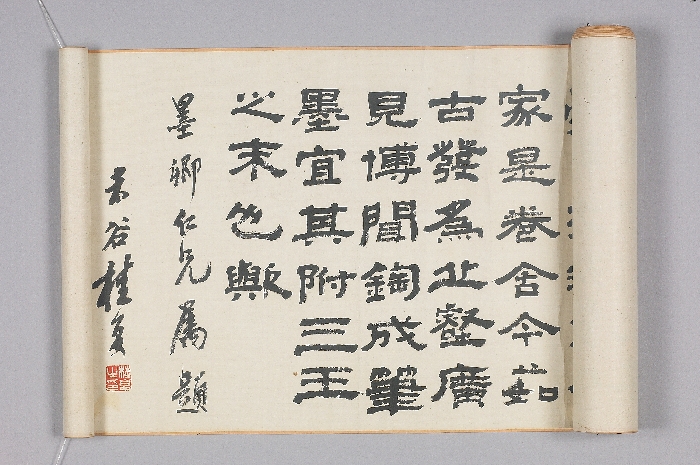 家是卷舍今茹
古發為止壑廣
見博聞成筆
墨宜其附三王
之末也歟
墨卿仁兄屬題
未谷桂馥